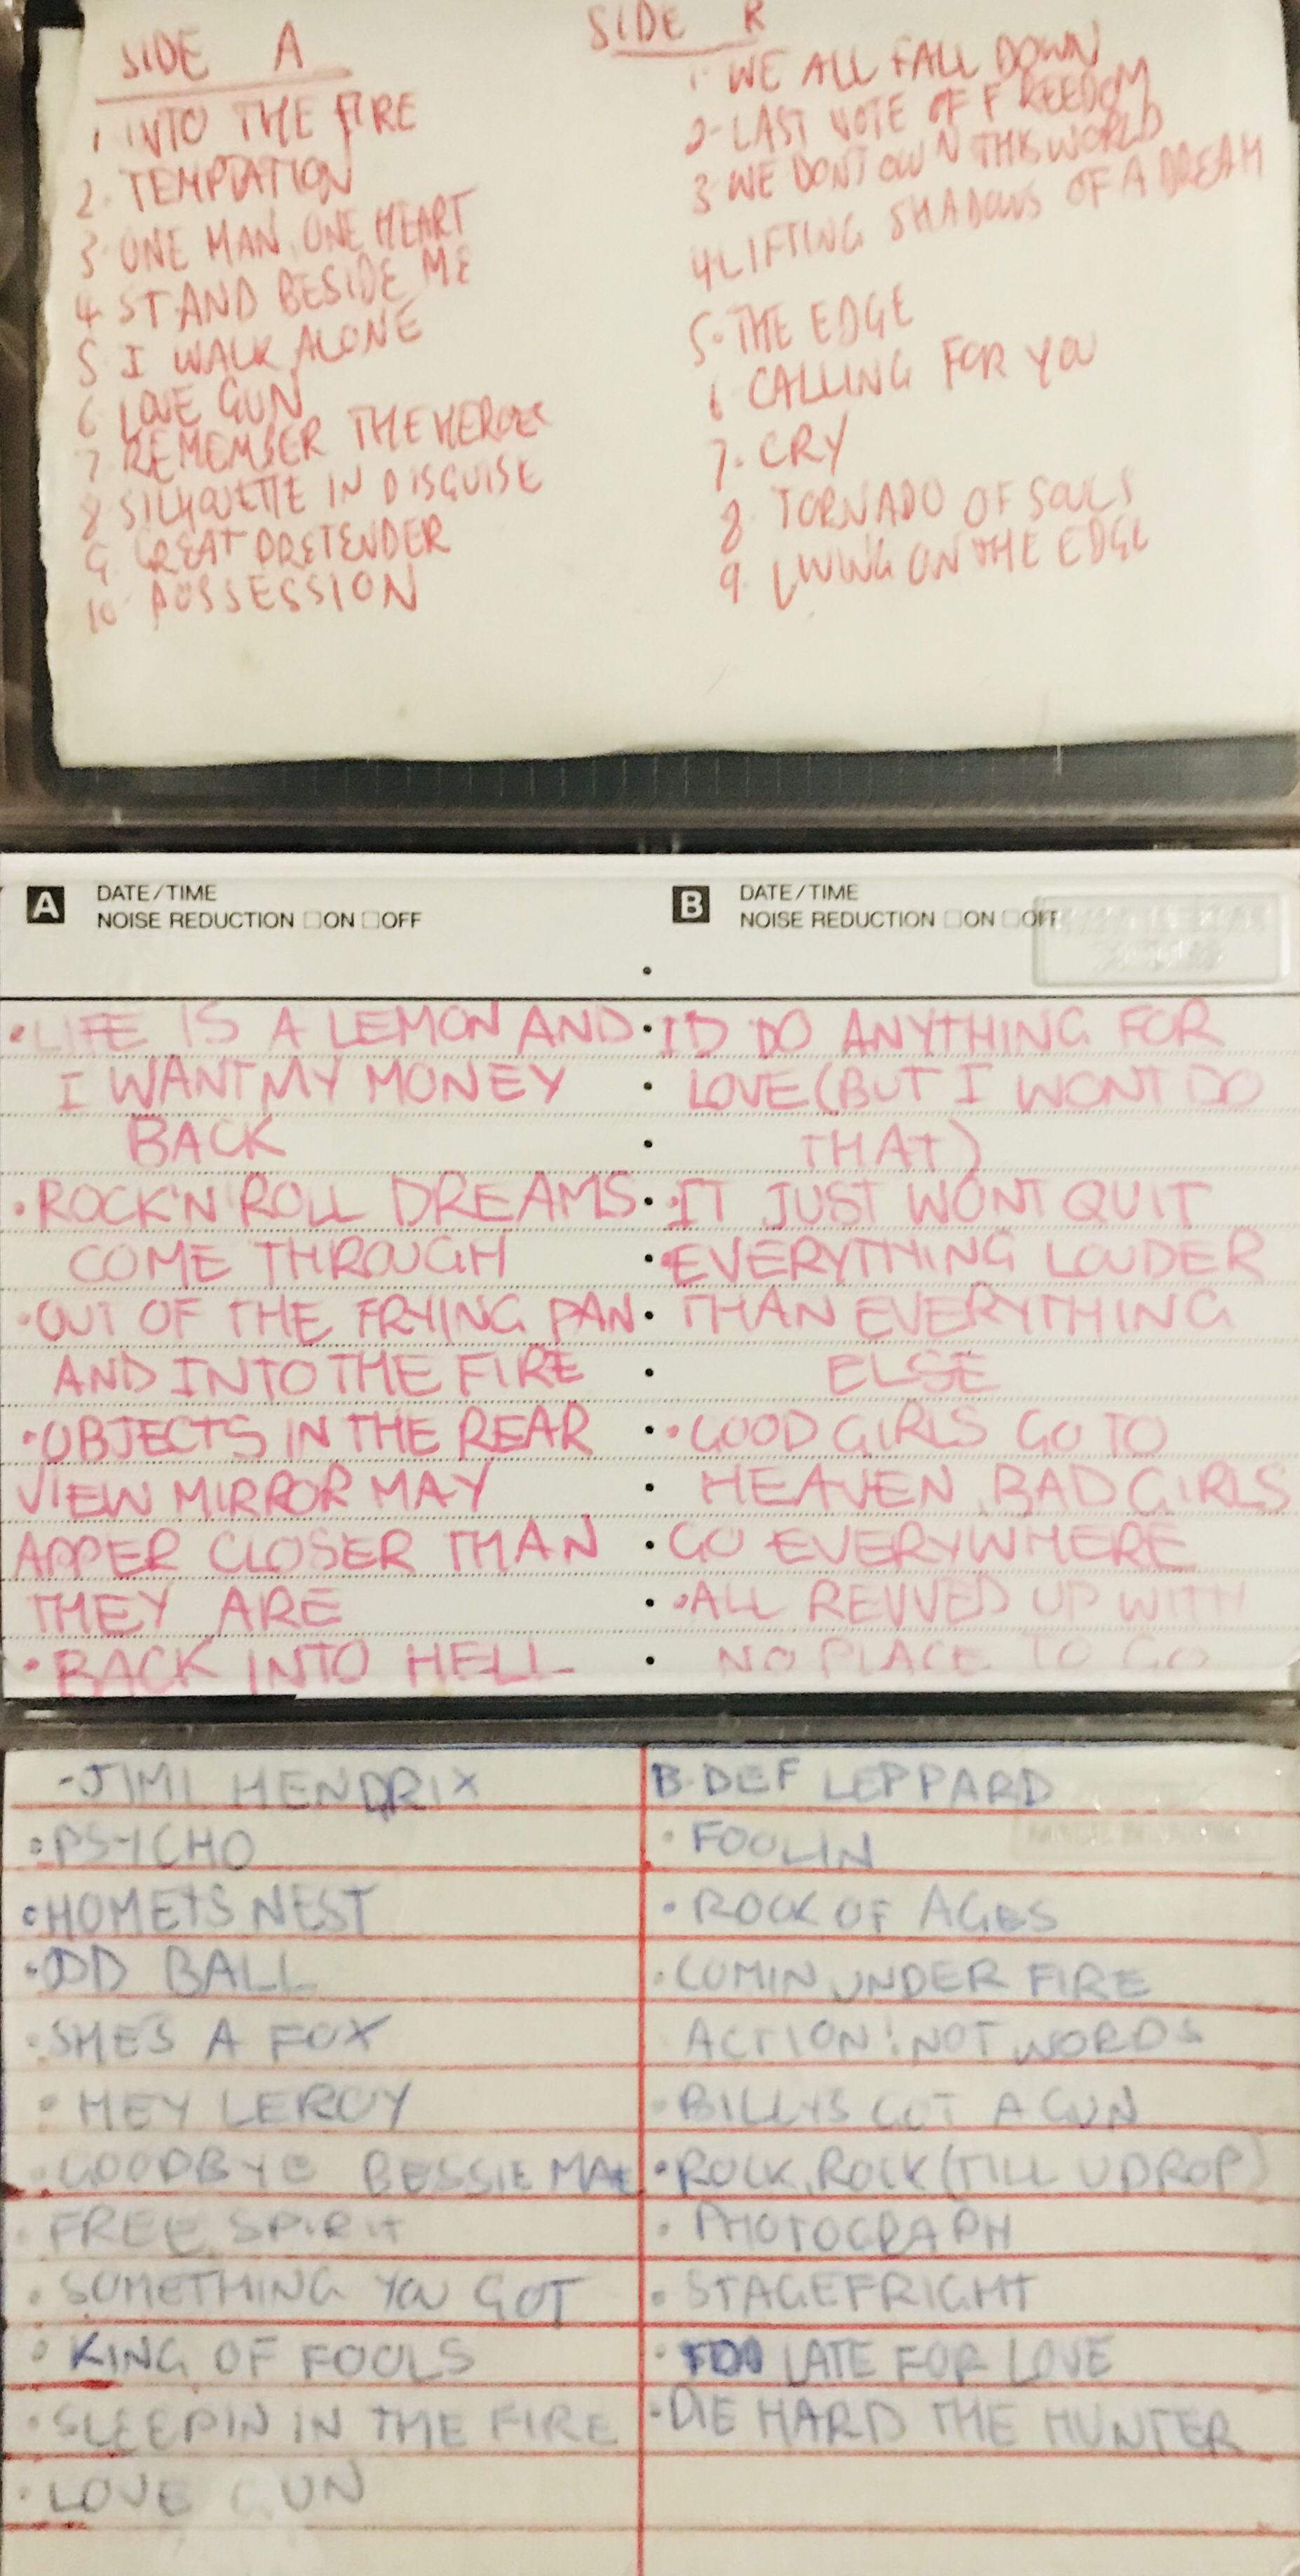 SIDE A
1 INTO THE FIRE
2. TEMPTATION
3 ONE MAN, ONE HEART
4 STAND BESIDE ME
5 I WALK ALONE
6 LOVE GUN
7 REMEMBER THE HEROES
8 SILHOUETTE IN DISGUISE
9 GREAT PRETENDER
10 POSSESSION
SIDE B
1. WE ALL FALL DOWN
2- LAST VOTE OF FREEDOM
3 WE DONT OWN THIS WORLD
4 LIFTING SHADOWS OF A DREAM
5. THE EDGE
6 CALLING FOR YOU
7. CRY
8. TORNADO OF SOULS
9. LIVING ON THE EDGE
A DATE/TIME
NOISE REDUCTION ☐ON ☐OFF
•LIFE IS A LEMON AND
I WANT MY MONEY
BACK
•ROCK'N'ROLL DREAMS
COME THROUGH
•OUT OF THE FRYING PAN
AND INTO THE FIRE
•OBJECTS IN THE REAR
VIEW MIRROR MAY
APPER CLOSER THAN
THEY ARE
•BACK INTO HELL
B DATE/TIME
NOISE REDUCTION ☐ON ☐OFF
ID DO ANYTHING FOR
LOVE (BUT I WONT DO
THAT)
•IT JUST WONT QUIT
•EVERYTHING LOUDER
THAN EVERYTHING
ELSE
•GOOD GIRLS GO TO
HEAVEN, BAD GIRLS
GO EVERYWHERE
•ALL REVVED UP WITH
NO PLACE TO GO
-JIMI HENDRIX
•PSYCHO
•HORNETS NEST
•ODD BALL
•SHES A FOX
•HEY LEROY
•GOODBYE BESSIE MAE
•FREE SPIRIT
•SOMETHING YOU GOT
•KING OF FOOLS
•SLEEPIN IN THE FIRE
•LOVE GUN
B-DEF LEPPARD
•FOOLIN
•ROCK OF AGES
•COMIN UNDER FIRE
ACTION! NOT WORDS
•BILLYS GOT A GUN
•ROCK, ROCK (TILL U DROP)
•PHOTOGRAPH
•STAGEFRIGHT
•TOO LATE FOR LOVE
•DIE HARD THE HUNTER